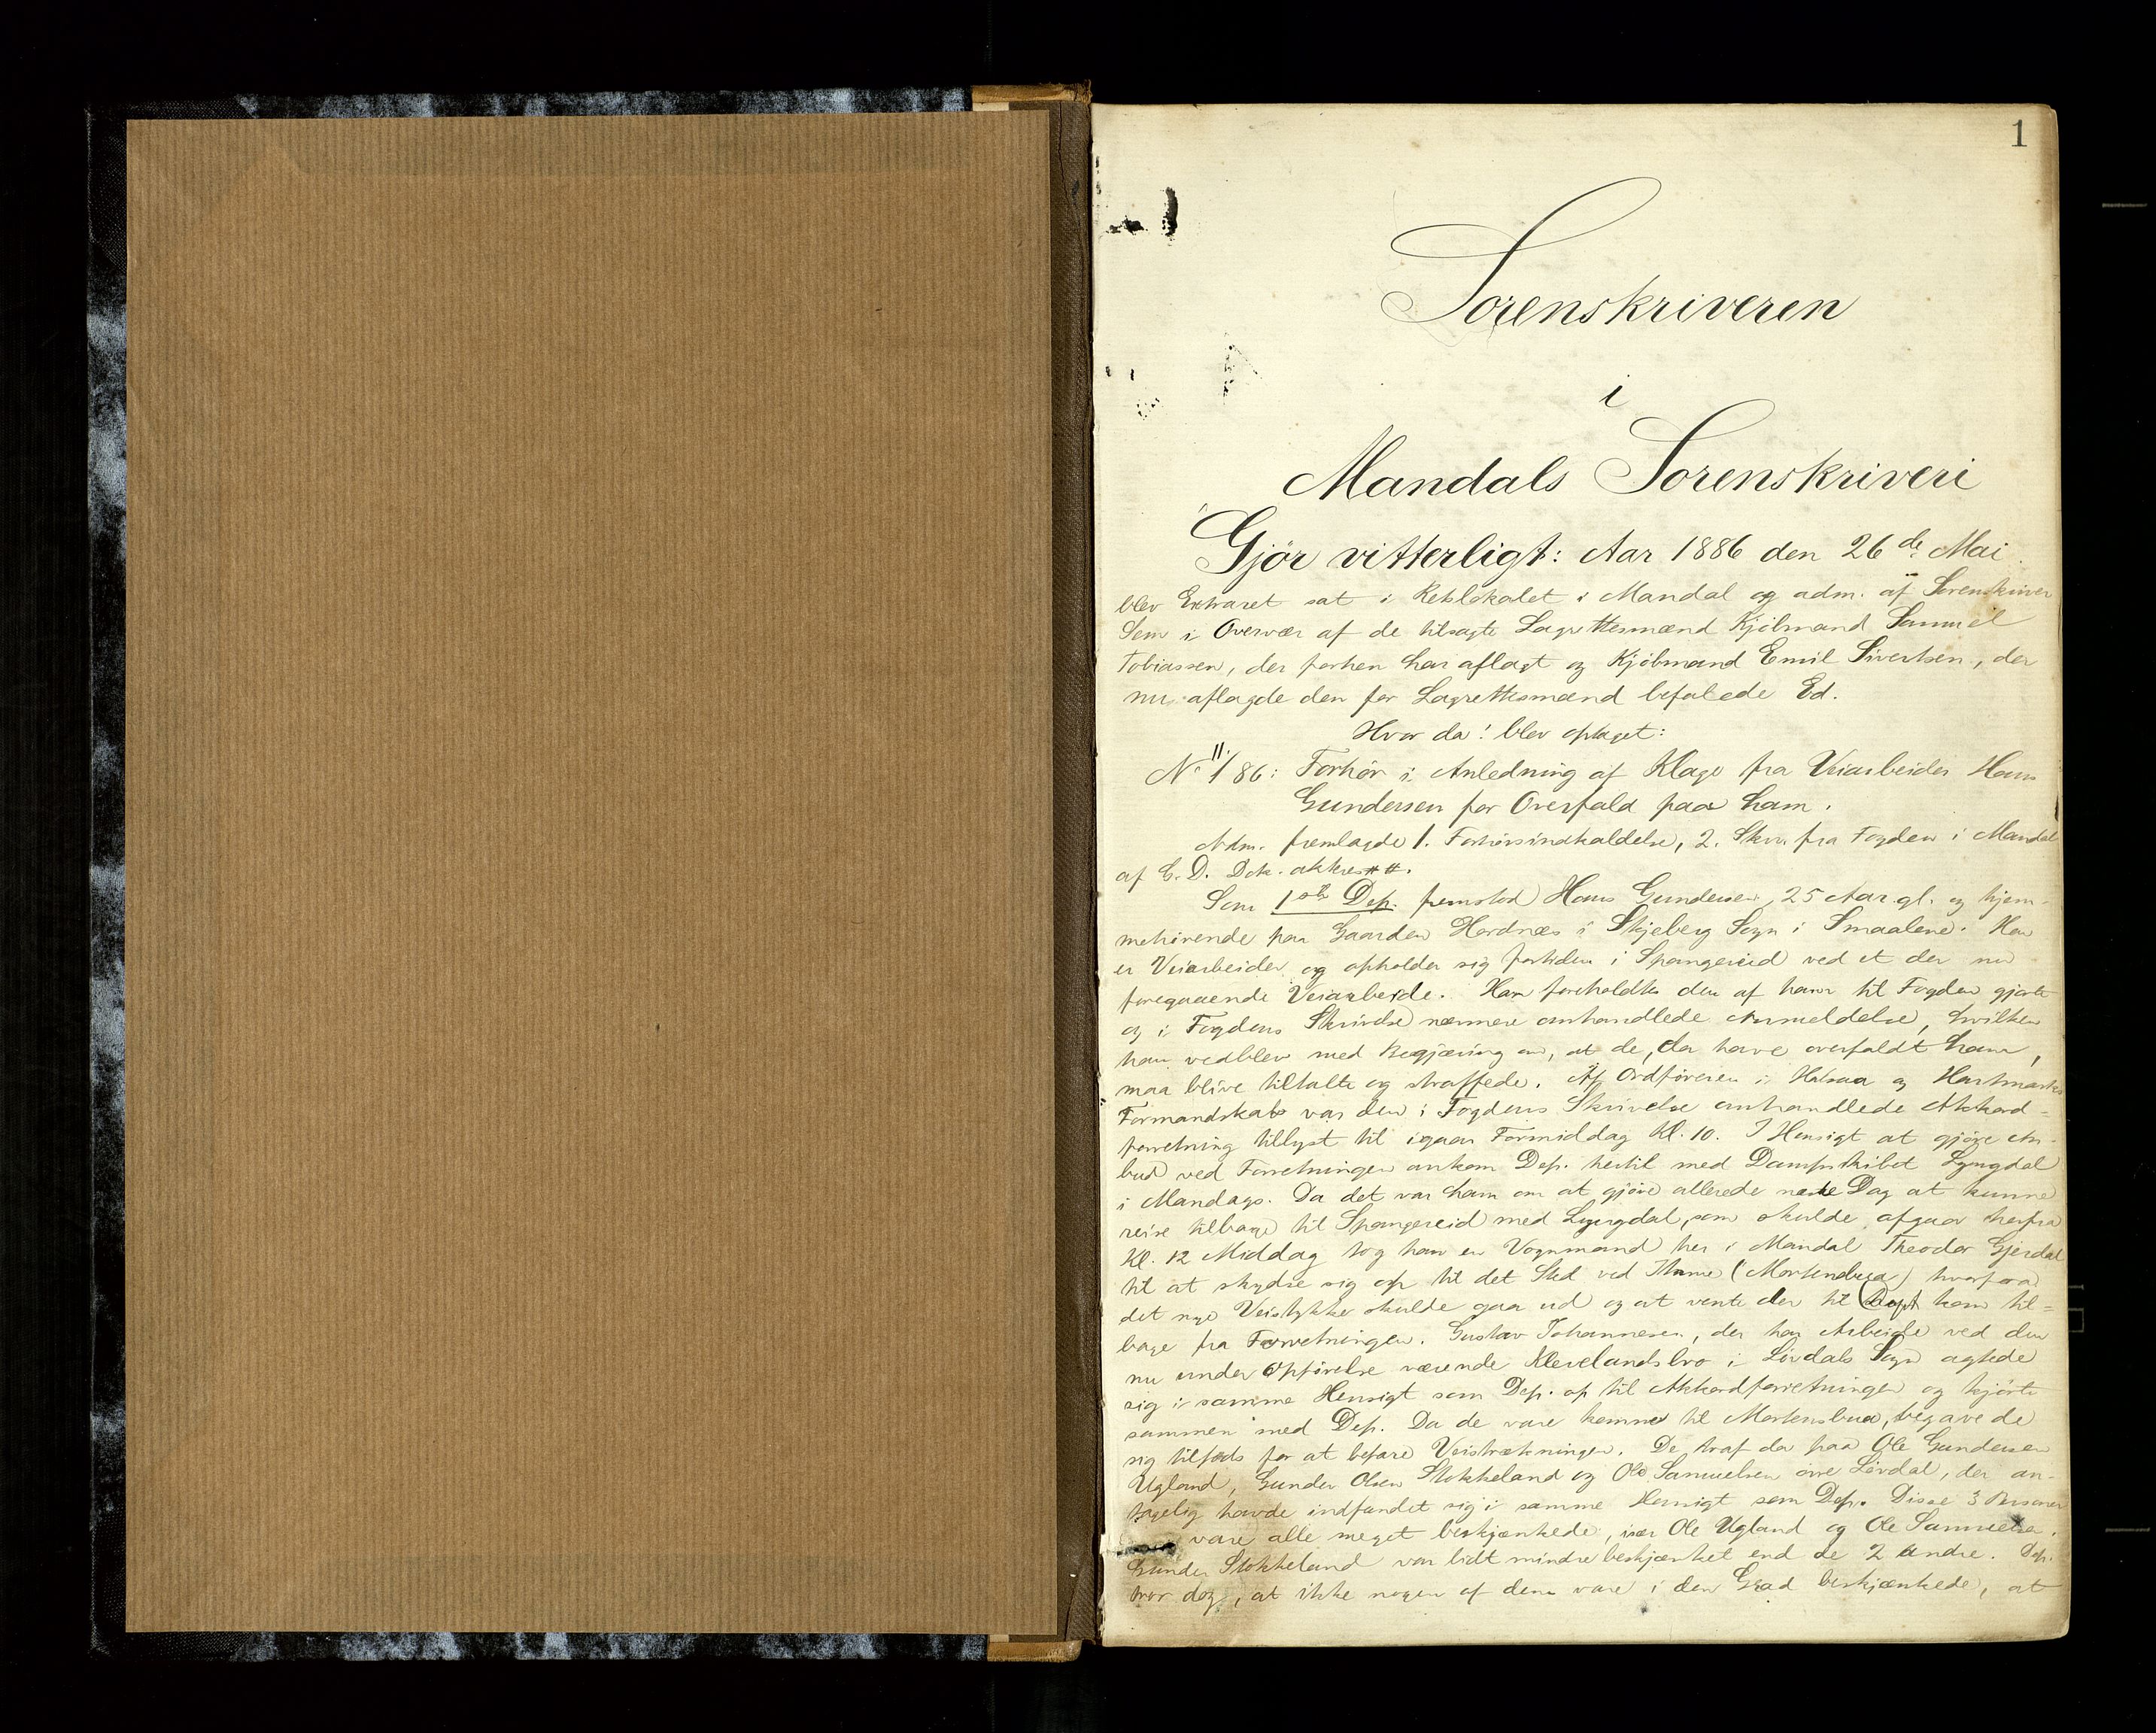 1
Sorenskriveren
i
Mandals Sorenskriveri
Gjör vitterligt: Aar 1886 den 26de Mai
blev Extraret sat i Retslokalet i Mandal og adm. af Sorenskriver
Sem i Overvær af de tilsagte Lagrettesmænd Kjöbmand Samuel
Tobiassen, der forhen har aflagt og Kjöbmand Emil Sivertsen, der
nu aflagde den for Lagrettesmænd befalede Ed.
Hvor da! blev optaget:
No 11/86: Forhör i Anledning af Klage fra Veiarbeider Hans
Gundersen for Overfald paa ham.
Adm. fremlagde 1. Forhörsindkaldelse, 2. Skr. fra Fogden i Mandal
af C. D. Dok. akter
Som 1ste Dep. fremstod Hans Gundersen, 25 Aar gl. og hjem-
mehörende paa Gaarden Hordnæs i Skjeberg Sogn i Smaalene. Han
er Veiarbeider og opholder sig fortiden i Spangereid ved et der nu
foregaaende Veiarbeide. Han foreholdtes den af ham til Fogden gjorte
og i Fogdens Skrivelse nærmere omhandlede Anmeldelse, hvilken
han vedblev med Begjæring om, at de, der have overfaldt ham,
maa blive tiltalte og straffede. Af Ordföreren i Halsaa og Hartmarks
Formandskab var den i Fogdens Skrivelse omhandlede Akkord-
forretning tillyst til igaar Formiddag Kl. 10. I Hensigt at gjöre An-
bud ved Forretningen ankom Dep. hertil med Dampskibet Lyngdal
i Mandags. Da det var ham om at gjöre allerede næste Dag at kunne
reise tilbage til Spangereid med Lyngdal, som skulde afgaa herfra
Kl. 12 Middag tog han en Vognmand her i Mandal Theodor Gjerdal
til at skydse sig op til det Sted ved Ihme (Mortensbua) hvorfra
det nye Veistykke skulde gaa ud og at vente der til Dept kom til=
bage fra Forretningen. Gustav Johannesen, der har Arbeide ved den
nu under Opförelse værende Klevelandsbro i Lövdals Sogn agtede
sig i samme Hensigt som Dep. op til Akkordforretningen og kjörte
sammen med Dep. Da de vare komne til Mortensbua, begave de
sig tilfods for at befare Veistrækningen. De traf da paa Ole Gundersen
Ugland, Gunder Olsen Stokkeland og Ole Samuelsen övre Lövdal, der an-
tagelig havde indfundet sig i samme Hensigt som Dep. Disse 3 Personer
vare alle meget beskjænkede, især Ole Ugland og Ole Samuelsen.
Gunder Stokkeland var lidt mindre beskjænket end de 2 andre. Dep.
tror dog, at ikke nogen af dem vare i den Grad beskjænkede, at